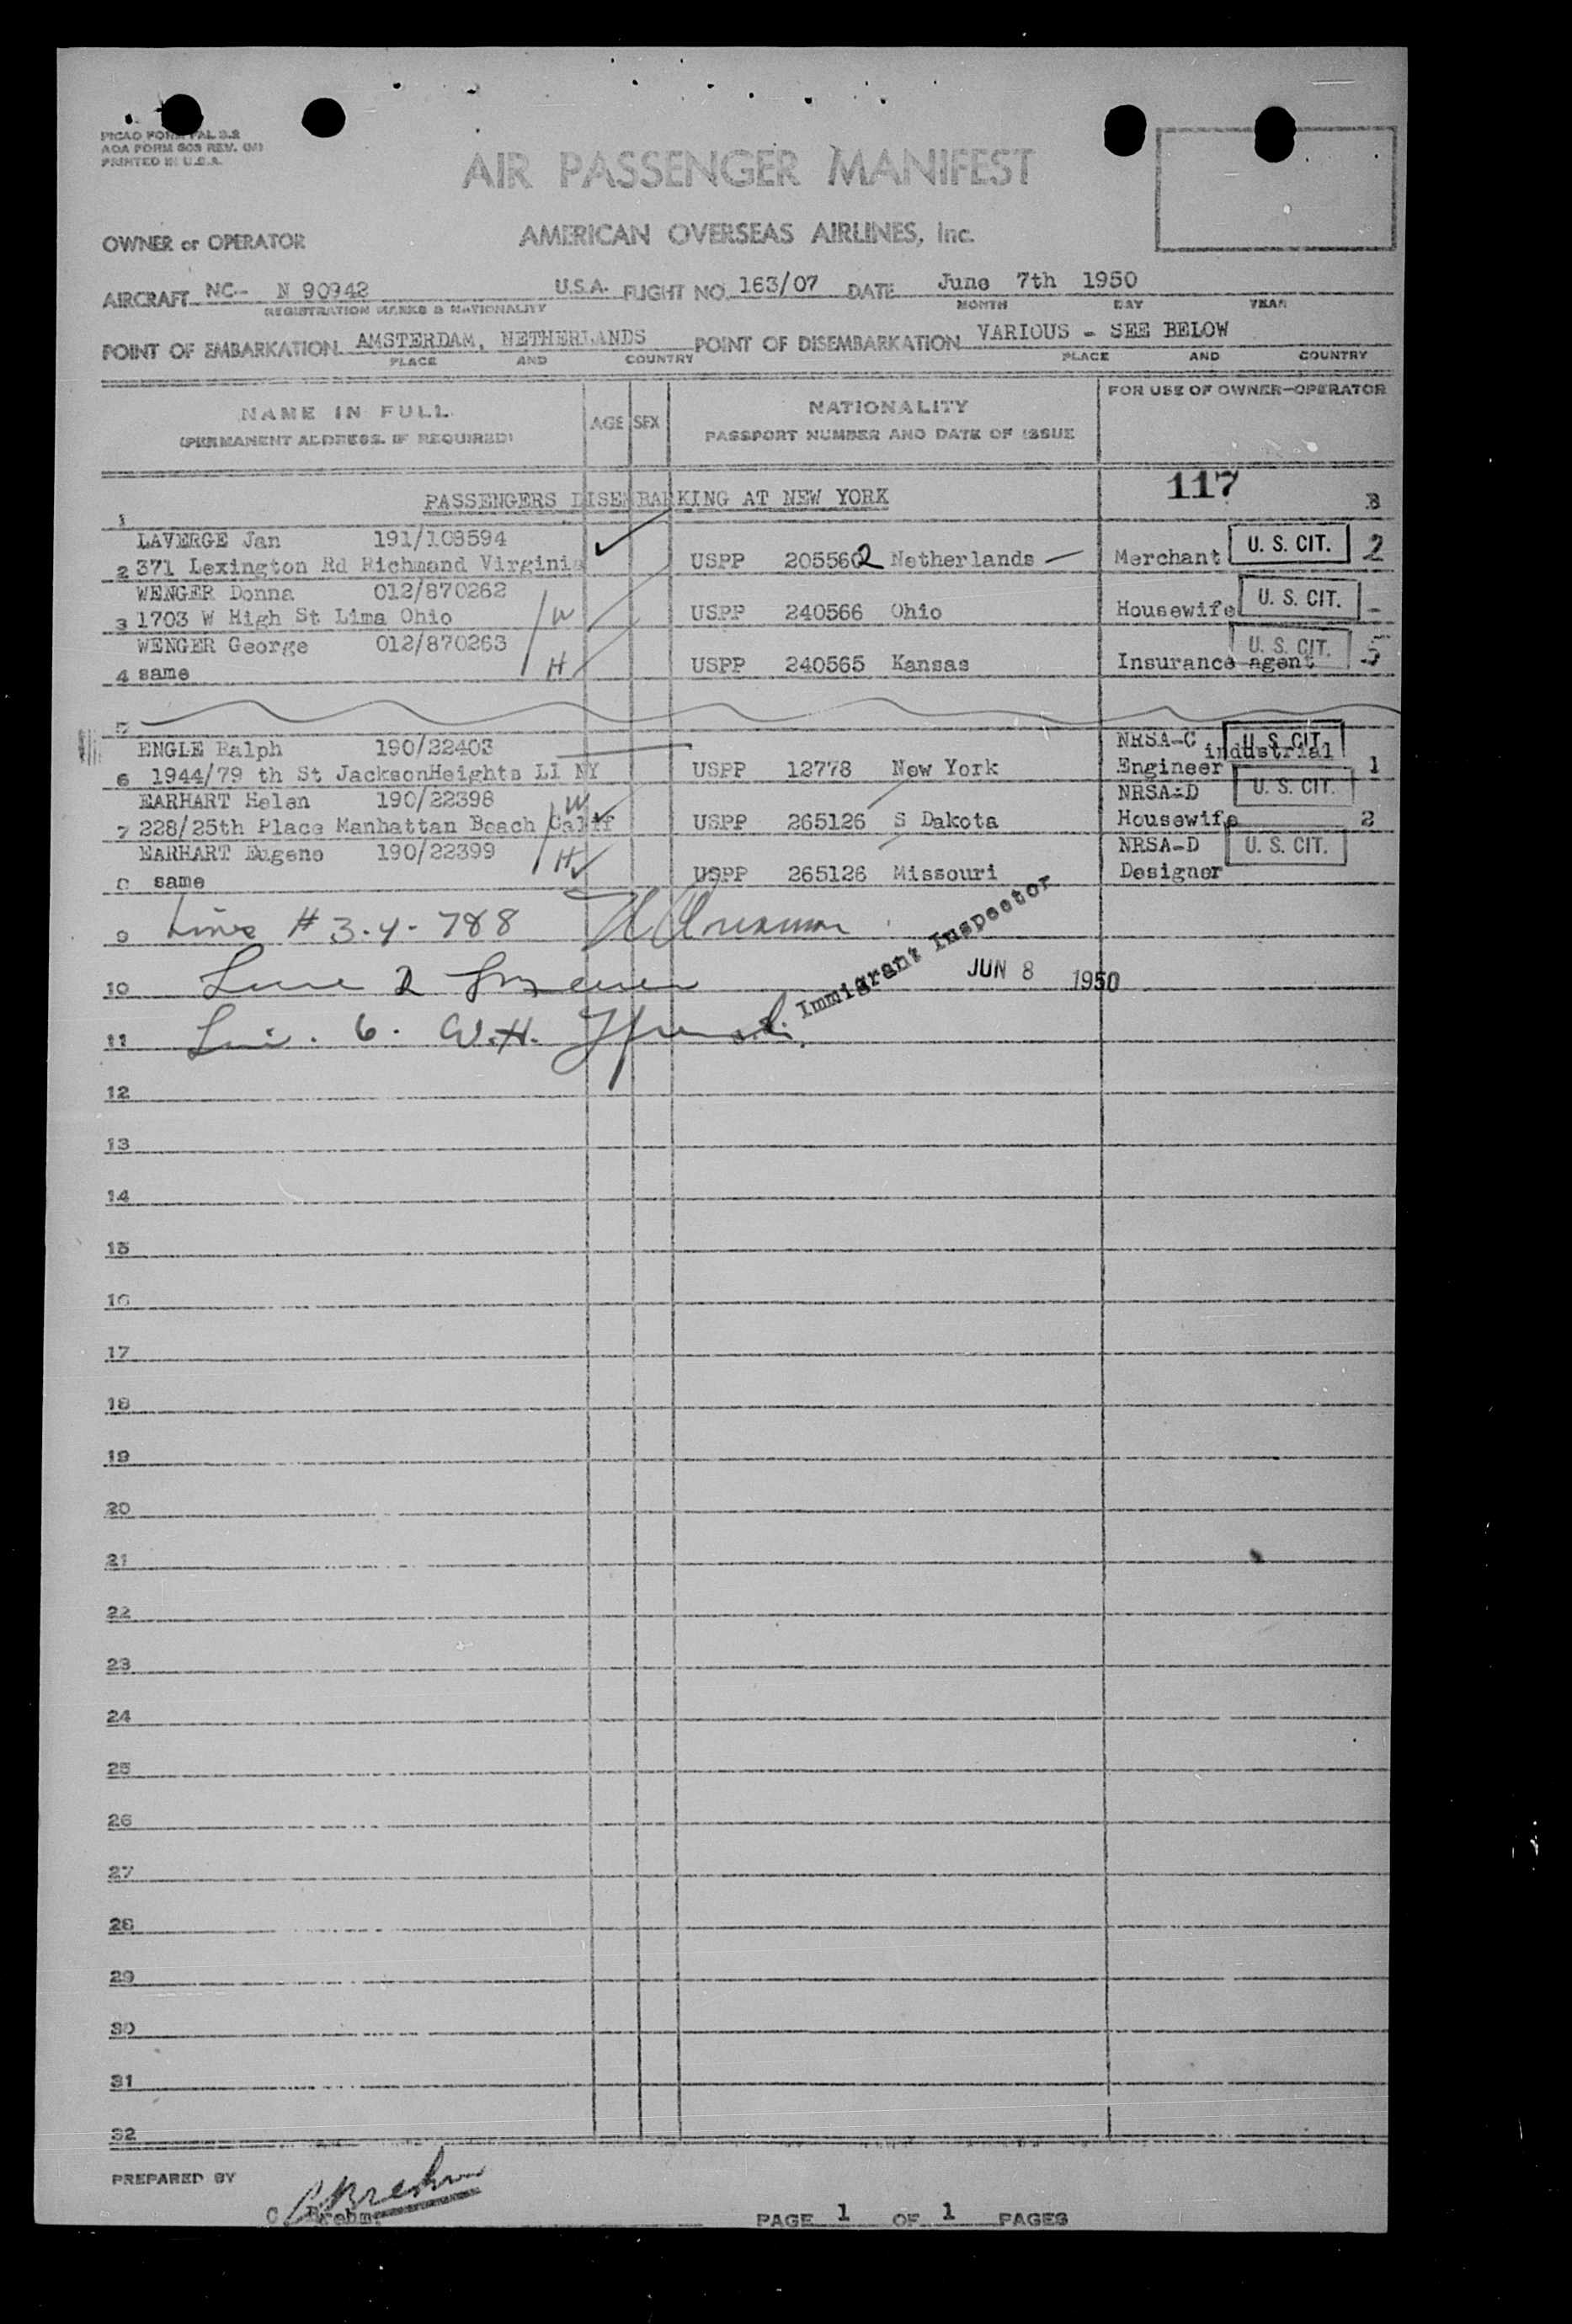 PICAO FORM FAL 3.2
AOA FORM 603 REV.
PRINTED IN U.S.A.
AIR PASSENGER MANIFEST
OWNER or OPERATOR AMERICAN OVERSEAS AIRLINES, Inc.
AIRCRAFT NC- N 90942 U.S.A. FLIGHT NO. 163/07 DATE June 7th 1950
REGISTRATION MARKS & NATIONALITY MONTH DAY YEAR
POINT OF EMBARKATION AMSTERDAM, NETHERLANDS POINT OF DISEMBARKATION VARIOUS - SEE BELOW
PLACE AND COUNTRY PLACE AND COUNTRY
NAME IN FULL AGE SEX NATIONALITY FOR USE OF OWNER-OPERATOR
(PERMANENT ADDRESS, IF REQUIRED) PASSPORT NUMBER AND DATE OF ISSUE
117
1 PASSENGERS DISEMBARKING AT NEW YORK B
LAVERGE Jan 191/108594 U. S. CIT.
2 371 Lexington Rd Richmond Virginia USPP 205562 Netherlands Merchant 2
WENGER Donna 012/870262 U. S. CIT.
3 1703 W High St Lima Ohio W USPP 240566 Ohio Housewife -
WENGER George 012/870263 U. S. CIT.
4 same H USPP 240565 Kansas Insurance agent 5
5
ENGLE Ralph 190/22403 NRSA-C industrial U. S. CIT.
6 1944/79 th St JacksonHeights LI NY USPP 12778 New York Engineer 1
EARHART Helen 190/22398 W NRSA-D U. S. CIT.
7 228/25th Place Manhattan Beach Calif USPP 265126 S Dakota Housewife 2
EARHART Eugene 190/22399 H NRSA-D U. S. CIT.
8 same USPP 265126 Missouri Designer
9 Lines # 3-4-7&8
10 Line 2 JUN 8 1950
11 Lin. 6. W.H. Immigrant Inspector
12
13
14
15
16
17
18
19
20
21
22
23
24
25
26
27
28
29
30
31
32
PREPARED BY C Brehm
PAGE 1 OF 1 PAGES